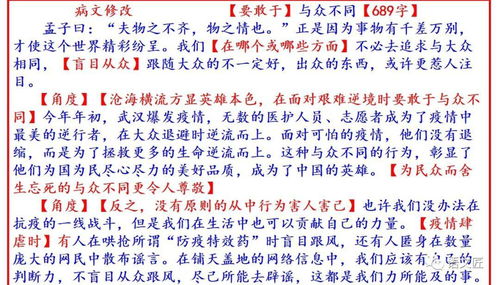 病文修改 【要敢于】与众不同【689字】
孟子曰：“夫物之不齐，物之情也。”正是因为事物有千差万别，
才使这个世界精彩纷呈。我们【在哪个或哪些方面】不必去追求与大众
相同，【盲目从众】跟随大众的不一定好，出众的东西，或许更惹人注
目。
【角度】【沧海横流方显英雄本色，在面对艰难逆境时要敢于与众不
同】今年年初，武汉爆发疫情，无数的医护人员、志愿者成为了疫情中
最美的逆行者，在大众退避时逆流而上。面对可怕的疫情，他们没有退
缩，而是为了拯救更多的生命逆流而上。这种与众不同的行为，彰显了
他们为国为民尽心尽力的美好品质，成为了中国的英雄。【为民众而舍
生忘死的与众不同更令人尊敬】
【角度】【反之，没有原则的从中行为害人害已】也许我们没办法在
抗疫的一线战斗，但是我们在生活中也可以贡献自己的力量。【疫情肆
虐时】有人在哄抢所谓“防疫特效药”时盲目跟风，还有人匿身在数量
庞大的网民中散布谣言。在铺天盖地的网络信息中，我们应该有自己的
判断力，不盲目从众跟风，尽己所能去辟谣，这都是我们力所能及的事。